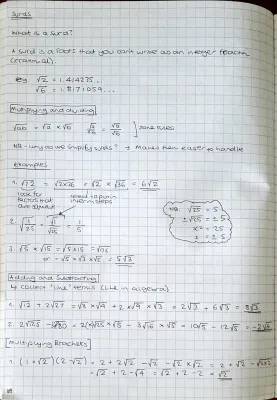 Surds
What is a surd?
A surd is a root that you can't write as an integer fraction
(irrational).
eg √2 = 1.414275...
Multiplying and dividing
√ab = √a × √b √a/b = √a/√b ] some rules
NB - why do we simplify surds? → Makes them easier to handle
Examples
1. √72 = √2×36 = √2 × √36 = 6√2
look for
factors that
are square
2. √1/25 = √1/√25 = 1/5
3. √5 × √15 = √5×15 = √75
or = √5 × √3 × √5 = 5√3
NB. √25 = 5
±√25 = ±5
x² = 25
x = ±5
Adding and Subtracting
↳ collect "like" terms (like in algebra)
1. √12 + 2√27 = √3 × √4 + 2 × √9 × √3 = 2√3 + 6√3 = 8√3
Multiplying Brackets
1. (1+√2)(2-√2) = 2 + 2√2 - √2 - √2 × √2 = 2 + √2 - √2×2
= √2 + 2 - √4 = √2 + 2 - 2 = √2